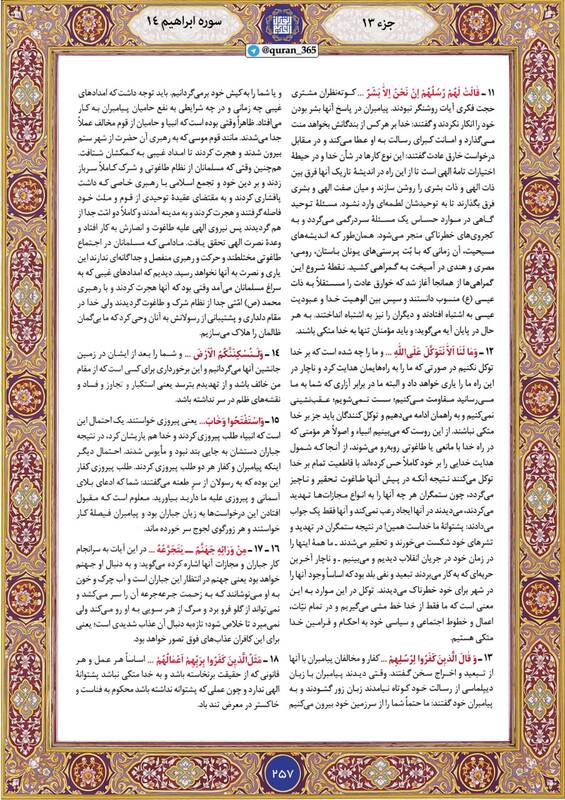 جزء ۱۳
سوره ابراهیم ۱٤
@quran_365
۱۱ ـ قَالَتْ لَهُمْ رُسُلُهُمْ إِن نَحْنُ إِلاَّ بَشَرٌ ... کوته‌نظران مشتری
حجت فکری آیات روشنگر نبودند. پیامبران در پاسخ آنها بشر بودن
خود را انکار نکردند و گفتند: خدا بر هر کس از بندگانش بخواهد منت
می‌گذارد و امانت کبرای رسالت به او عطا می‌کند و در مقابل
درخواست خارق عادت گفتند: این نوع کارها در شأن خدا و در حیطهٔ
اختیارات تامهٔ الهی است تا از این راه در اندیشهٔ تاریک آنها فرق بین
ذات الهی و ذات بشری را روشن سازند و میان صفت الهی و بشری
فرق بگذارند تا به توحیدشان لطمه‌ای وارد نشود. مسئلهٔ توحید
گاهی در موارد حساس یک مسئلهٔ سردرگمی می‌گردد و به
کجروی‌های خطرناکی منجر می‌شود. همان‌طور که اندیشه‌های
مسیحیت، آن زمانی که با بُت پرستی‌های یونان باستان، رومی،
مصری و هندی در آمیخت به گمراهی کشید. نقطهٔ شروع این
گمراهی‌ها از همانجا آغاز شد که خوارق عادت را مستقلاً به ذات
عیسی (ع) منسوب دانستند و سپس بین الوهیت خدا و عبودیت
عیسی به اشتباه افتادند و دیگران را نیز به اشتباه انداختند. به هر
حال در پایان آیه می‌گوید: و باید مؤمنان تنها به خدا متکی باشند.
۱۲ ـ وَمَا لَنَا أَلاَّ نَتَوَكَّلَ عَلَى اللهِ ... و ما را چه شده است که بر خدا
توکل نکنیم در صورتی که ما را به راه‌هایمان هدایت کرد و ناچار در
این راه ما را یاری خواهد داد و البته ما در برابر آزاری که شما به ما
می‌رسانید مقاومت می‌کنیم؛ سست نمی‌شویم؛ عقب‌نشینی
نمی‌کنیم و به راهمان ادامه می‌دهیم و توکل کنندگان باید جز بر خدا
متکی نباشند. از این روست که می‌بینیم انبیاء و اصولاً هر مؤمنی که
در راه خدا با مانعی یا طاغوتی روبه‌رو می‌شوند، از آنجا که شمول
هدایت خدایی را بر خود کاملاً حس کرده‌اند با قاطعیت تمام بر خدا
توکل می‌کنند نتیجه آنکه در پیش آنها طاغوت تحقیر و ناچیز
می‌گردد، چون ستمگران هر چه آنها را به انواع مجازات‌ها تهدید
می‌کردند، می‌دیدند در آنها ایجاد رعب نمی‌کند و آنها فقط یک جواب
می‌دادند: پشتوانهٔ ما خداست همین! در نتیجه ستمگران در تهدید و
تشرهای خود شکست می‌خورند و تحقیر می‌شدند ـ ما همهٔ اینها را
در زمان خود در جریان انقلاب دیدیم و می‌بینیم ـ و ناچار آخرین
حربه‌ای که به کار می‌بردند تبعید و نفی بلد بود که اساساً وجود آنها را
در شهر برای خود خطرناک می‌دیدند. توکل در این موارد به این
معنی است که ما فقط از خدا خط مشی می‌گیریم و در تمام نیّات،
اعمال و خطوط اجتماعی و سیاسی خود به احکام و فرامین خدا
متکی هستیم.
۱۳ ـ وَ قَالَ الَّذِينَ كَفَرُوا لِرُسُلِهِمْ ... کفار و مخالفان پیامبران با آنها
از تبعید و اخراج سخن گفتند. وقتی دیدند پیامبران با زبان
دیپلماسی از رسالت خود کوتاه نیامدند زبان زور گشودند و به
پیامبران خود گفتند: ما حتماً شما را از سرزمین خود بیرون می‌کنیم
و یا شما را به کیش خود برمی‌گردانیم. باید توجه داشت که امدادهای
غیبی چه زمانی و در چه شرایطی به نفع حامیان پیامبران به کار
می‌افتاد. ظاهراً وقتی بوده است که انبیا و حامیان از قوم مخالف عملاً
جدا می‌شدند. مانند قوم موسی که به رهبری آن حضرت از شهر ستم
بیرون شدند و هجرت کردند تا امداد غیبی به کمکشان شتافت.
همچنین وقتی که مسلمانان از نظام طاغوتی و شرک کاملاً سرباز
زدند و بر دین خود و تجمع اسلامی با رهبری خاصی که داشت
پافشاری کردند و به مقتضای عقیدهٔ توحیدی از قوم و ملت خود
فاصله گرفتند و هجرت کردند و به مدینه آمدند و کاملاً دو امّت جدا از
هم گردیدند پس نیروی الهی علیه طاغوت و انصارش به کار افتاد و
وعدهٔ نصرت الهی تحقق یافت. مادامی که مسلمانان در اجتماع
طاغوتی مختلطند و حرکت و رهبری منفصل و جداگانه‌ای ندارند این
یاری و نصرت به آنها نخواهد رسید. دیدیم که امدادهای غیبی که به
سراغ مسلمانان می‌آمد وقتی بود که آنها هجرت کردند و با رهبری
محمد (ص) امّتی جدا از نظام شرک و طاغوت گردیدند ولی خدا در
مقام دلداری و پشتیبانی از رسولانش به آنان وحی کرد که ما بی‌گمان
ظالمان را هلاک می‌سازیم.
۱۴ ـ وَلَنُسْكِنَنَّكُمُ الْأَرْضَ ... و شما را بعد از ایشان در زمین
جانشین آنها می‌گردانیم و این برخورداری برای کسی است که از مقام
من خائف باشد و از تهدیدم بترسد یعنی استکبار و تجاوز و فساد و
نقشه‌های ظلم در سر نداشته باشد.
۱۵ ـ وَاسْتَفْتَحُوا وَخَابَ... یعنی پیروزی خواستند. یک احتمال این
است که انبیاء طلب پیروزی کردند و خدا هم یاریشان کرد، در نتیجه
جباران دستشان به جایی بند نبود و مأیوس شدند. احتمال دیگر
اینکه پیامبران و کفار هر دو طلب پیروزی کردند. طلب پیروزی کفار
این بوده که به رسولان از سر طعنه می‌گفتند؛ شما که ادعای بلای
آسمانی و پیروزی علیه ما دارید بیاورید. معلوم است که مقبول
افتادن این درخواست‌ها به زیان جباران بود و پیامبران فیصلهٔ کار
خواستند و هر زورگوی لجوج سر خورده ماند.
۱۶ ـ ۱۷ـ مِنْ وَرَائِهِ جَهَنَّمُ ــ يَتَجَرَّعُهُ ... در این آیات به سرانجام
کار جباران و مجازات آنها اشاره کرده می‌گوید: و به دنبال او جهنم
خواهد بود یعنی جهنم در انتظار این جباران است و آب چرک و خون
به او می‌نوشانند که به زحمت جرعه‌جرعه آن را سر می‌کشد و
نمی‌تواند از گلو فرو برد و مرگ از هر سویی به او رو می‌کند ولی
نمی‌میرد تا خلاص شود؛ تازه‌به دنبال آن عذاب شدیدی است؛ یعنی
برای این کافران عذاب‌های فوق تصور خواهد بود.
۱۸ ـ مَثَلُ الَّذِينَ كَفَرُوا بِرَبِّهِمْ أَعْمَالُهُمْ ... اساساً هر عمل و هر
قانونی که از حقیقت برنخاسته باشد و به خدا متکی نباشد پشتوانهٔ
الهی ندارد و چون عملی که پشتوانه نداشته باشد محکوم به فناست و
خاکستر در معرض تند باد.
۲۵۷